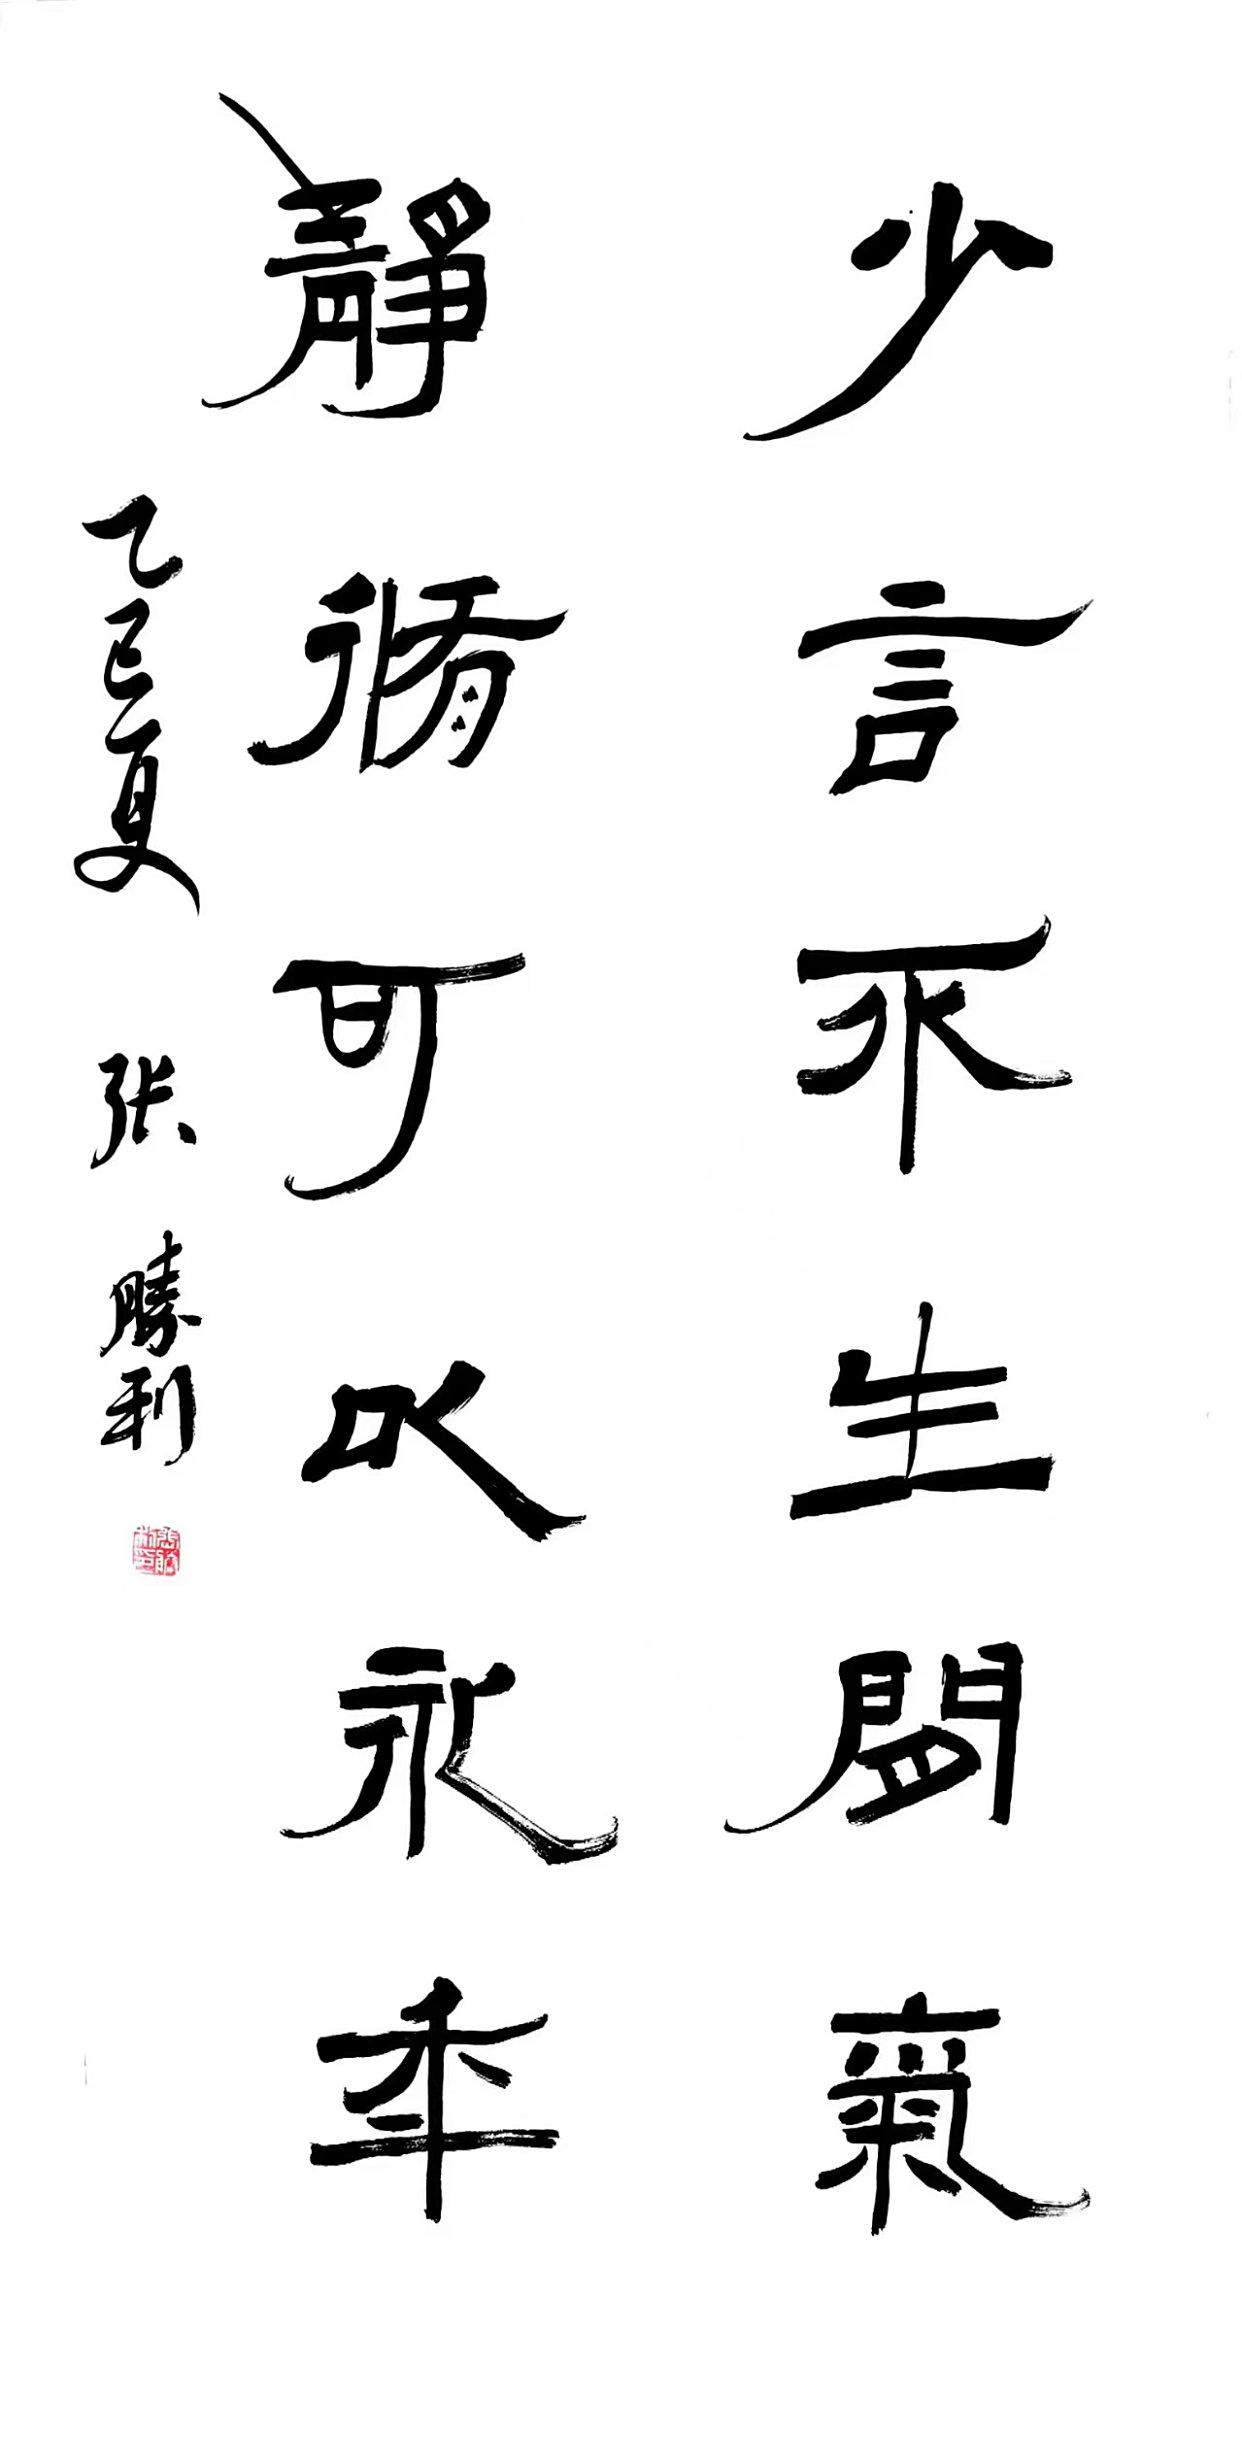 少言不生閙氣
靜脩可以永年
乙巳夏 张勝利